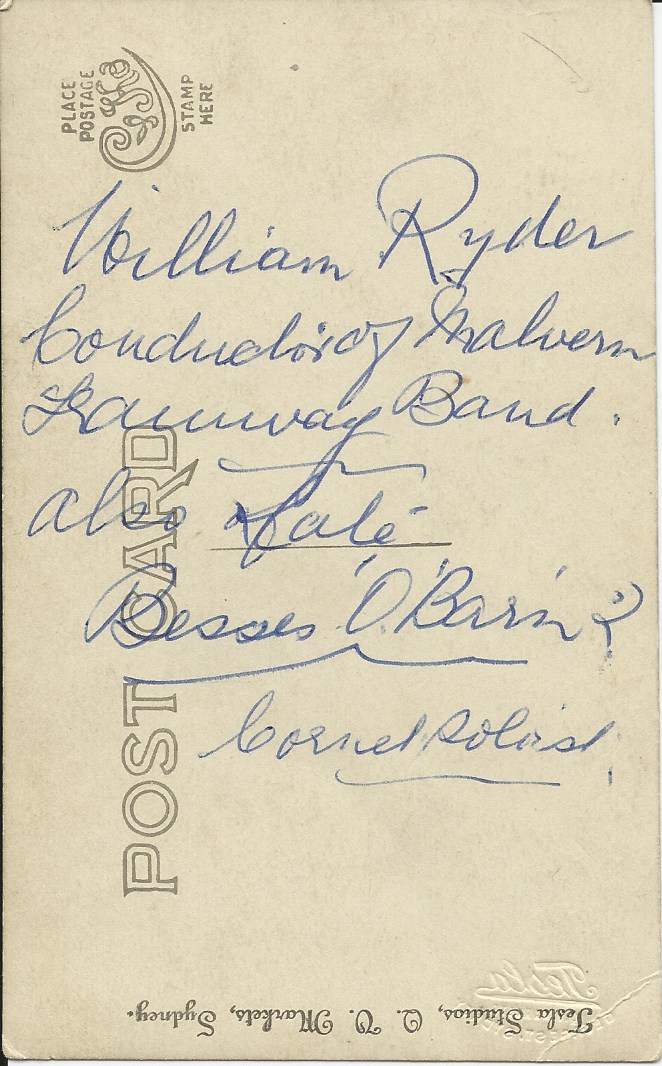 PLACE
POSTAGE
STAMP
HERE
William Ryder
Conductor of Malvern
Tramway Band.
also late
Besses 'O' Barn ?
Cornet Soloist.
POST CARD
Tesla
Tesla Studios, Q. V. Markets, Sydney.